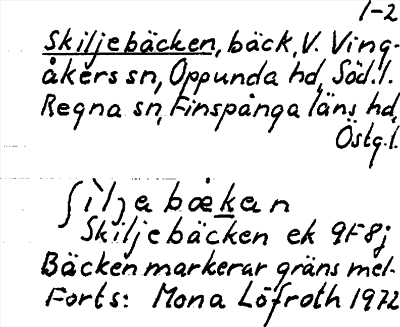 1-2
Skiljebäcken, bäck, V. Ving-
åkers sn, Oppunda hd, Söd.l.
Regna sn, Finspånga läns hd,
Östg.l.
Skiljebäcken ek 9F8j
Bäcken markerar gräns mel-
Forts: Mona Löfroth 1972